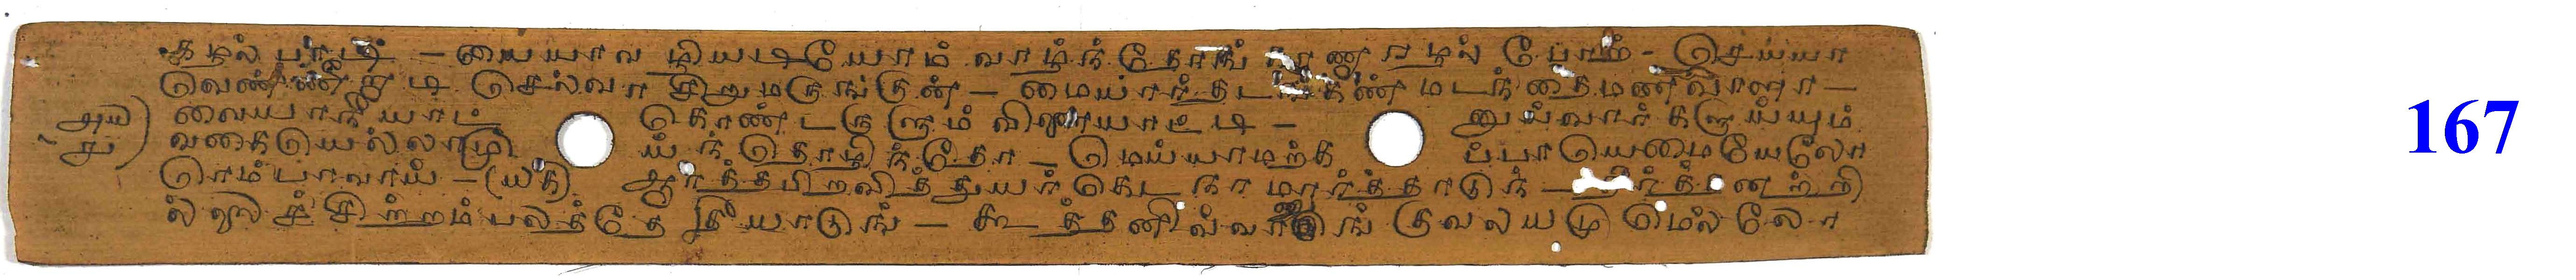 கழல் பாடி - யையாவ ழியடியோம் வாழ்ந்தோங் காணாரழல் போற் - செய்யா
வெண்ணீறாடி செல்வா சிறுமருங்குன் - மையார்தடங்கண் மடந்தைமணவாளா -
வையாநீயாட் கொண்டருளும் விளையாட்டி - னுய்வார்களுய்யும்
வகையெல்லாமு ய்ந்தொழிந்தோ - மெய்யாமற்கா ப்பாயெமையேலோ
ரெம்பாவாய் - (யக) ஆர்த்தபிறவித்துயர்கெடநா மார்த்தாடுந் - தீர்த்தனற்றி
ல்லைச்சிற்றம்பலத்தே தீயாடுங் - கூத்தனிவ்வானுங் குவலயமு மெல்லோ
167